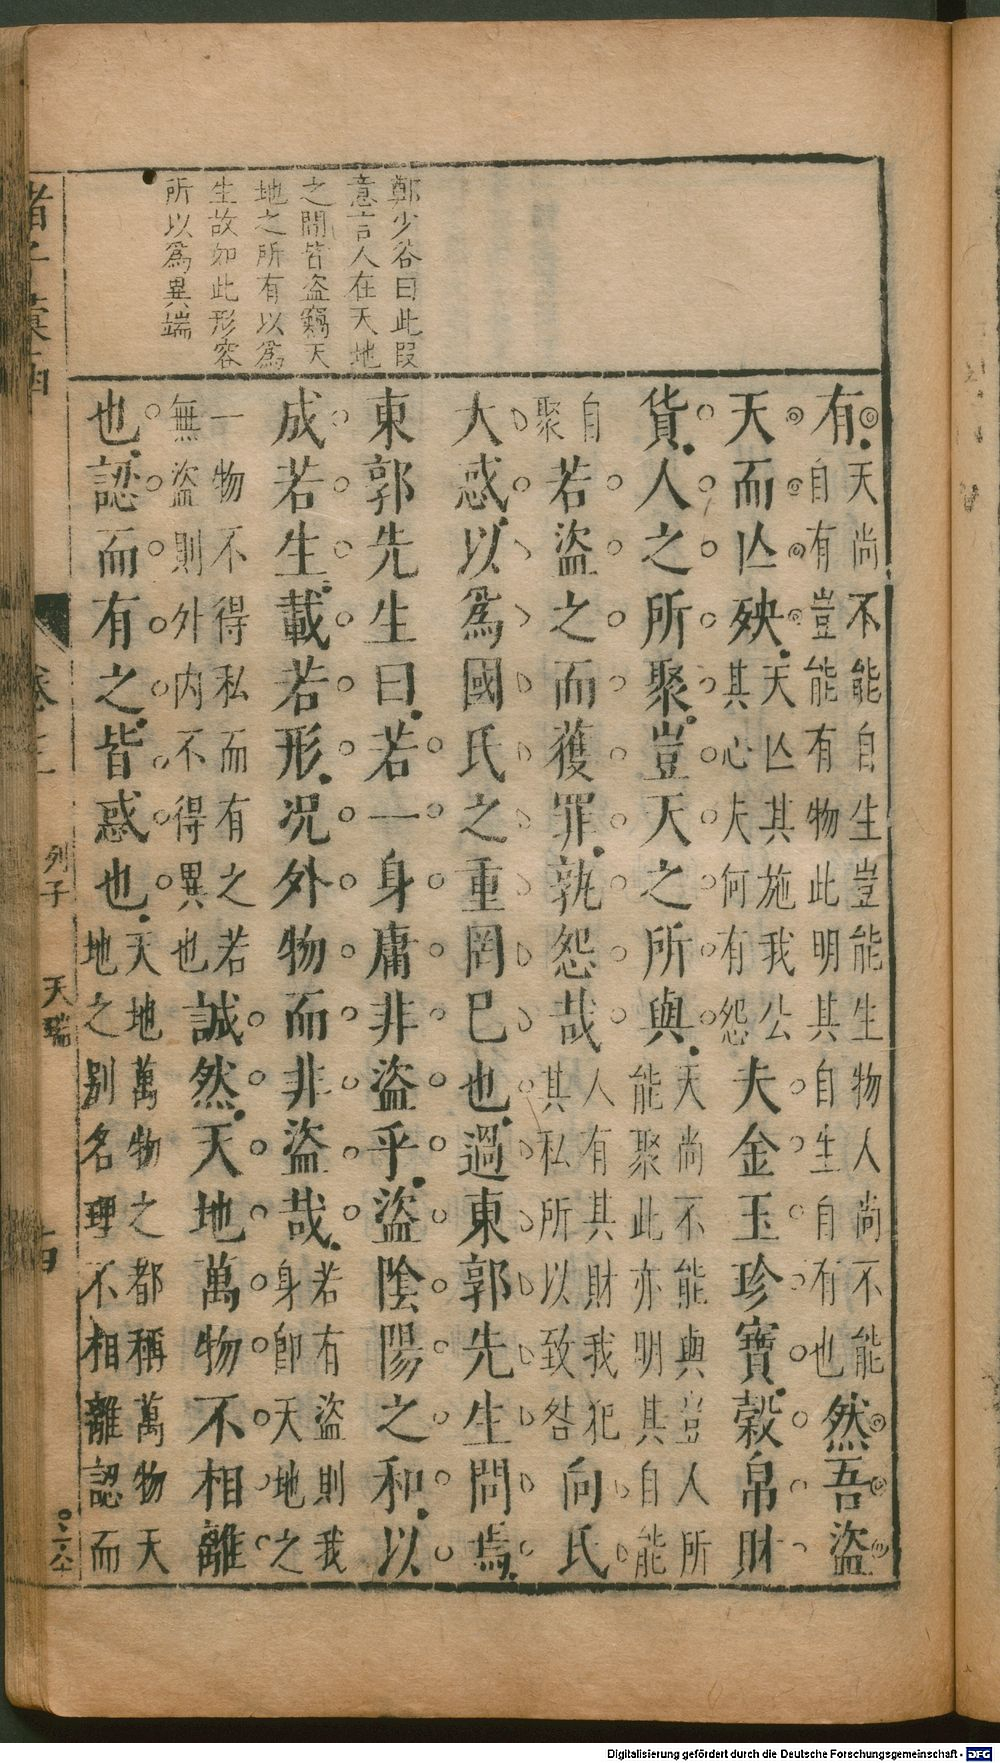 鄭少谷曰此叚
意言人在天地
之間皆盗竊天
地之所有以爲
生故如此形容
所以爲異端
有天尚不能自生豈能生物人尚不能自有豈能有物此明其自生自有也然吾盜
天而亾殃天亾其施我公其心夫何有怨夫金玉珍寶穀帛財
貨人之所聚豈天之所與天尚不能與豈人所能聚此亦明其自能
自聚若盜之而獲罪孰怨哉人有其財我犯其私所以致咎向氏
大惑以爲國氏之重罔巳也過東郭先生問焉
東郭先生曰若一身庸非盜乎盜陰陽之和以
成若生載若形况外物而非盜哉若有盜則我身卽天地之
一物不得私而有之若無盜則外内不得異也誠然天地萬物不相離
也認而有之皆惑也天地萬物之都稱萬物天地之别名理不相離認而
諸子
列子
天瑞
Digitalisierung gefördert durch die Deutsche Forschungsgemeinschaft - DFG